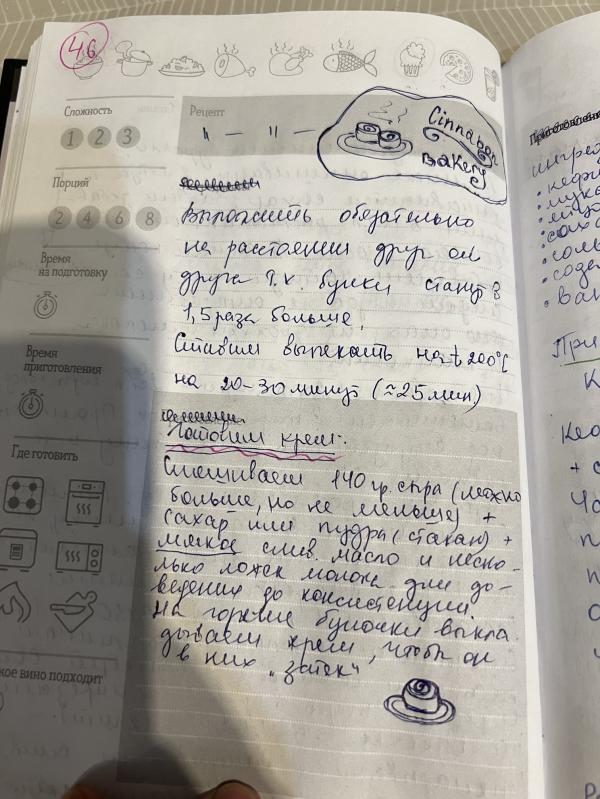 46
Сложность
1 2 3
Порций
2 4 6 8
Время
на подготовку
Время
приготовления
Где готовить
кое вино подходит
Рецепт
" — " —
Cinnabon
Bakery
Выложить обязательно
на расстоянии друг от
друга т.к. булки станут в
1,5 раза больше.
Ставим выпекать на t 200°C
на 20-30 минут (≈25 мин)
Готовим крем:
Смешиваем 140 гр. сыра (можно
больше, но не меньше) +
сахар или пудра (стакан) +
мягкое слив. масло и неско-
лько ложек молока для до-
ведения до консистенции.
На горячие булочки выкла
дываем крем, чтобы он
в них „затек"
Приготовление
ингре
• кефи
• мука
• яйцо
• саха
• соль
• сода
• ван
При
К
+ с